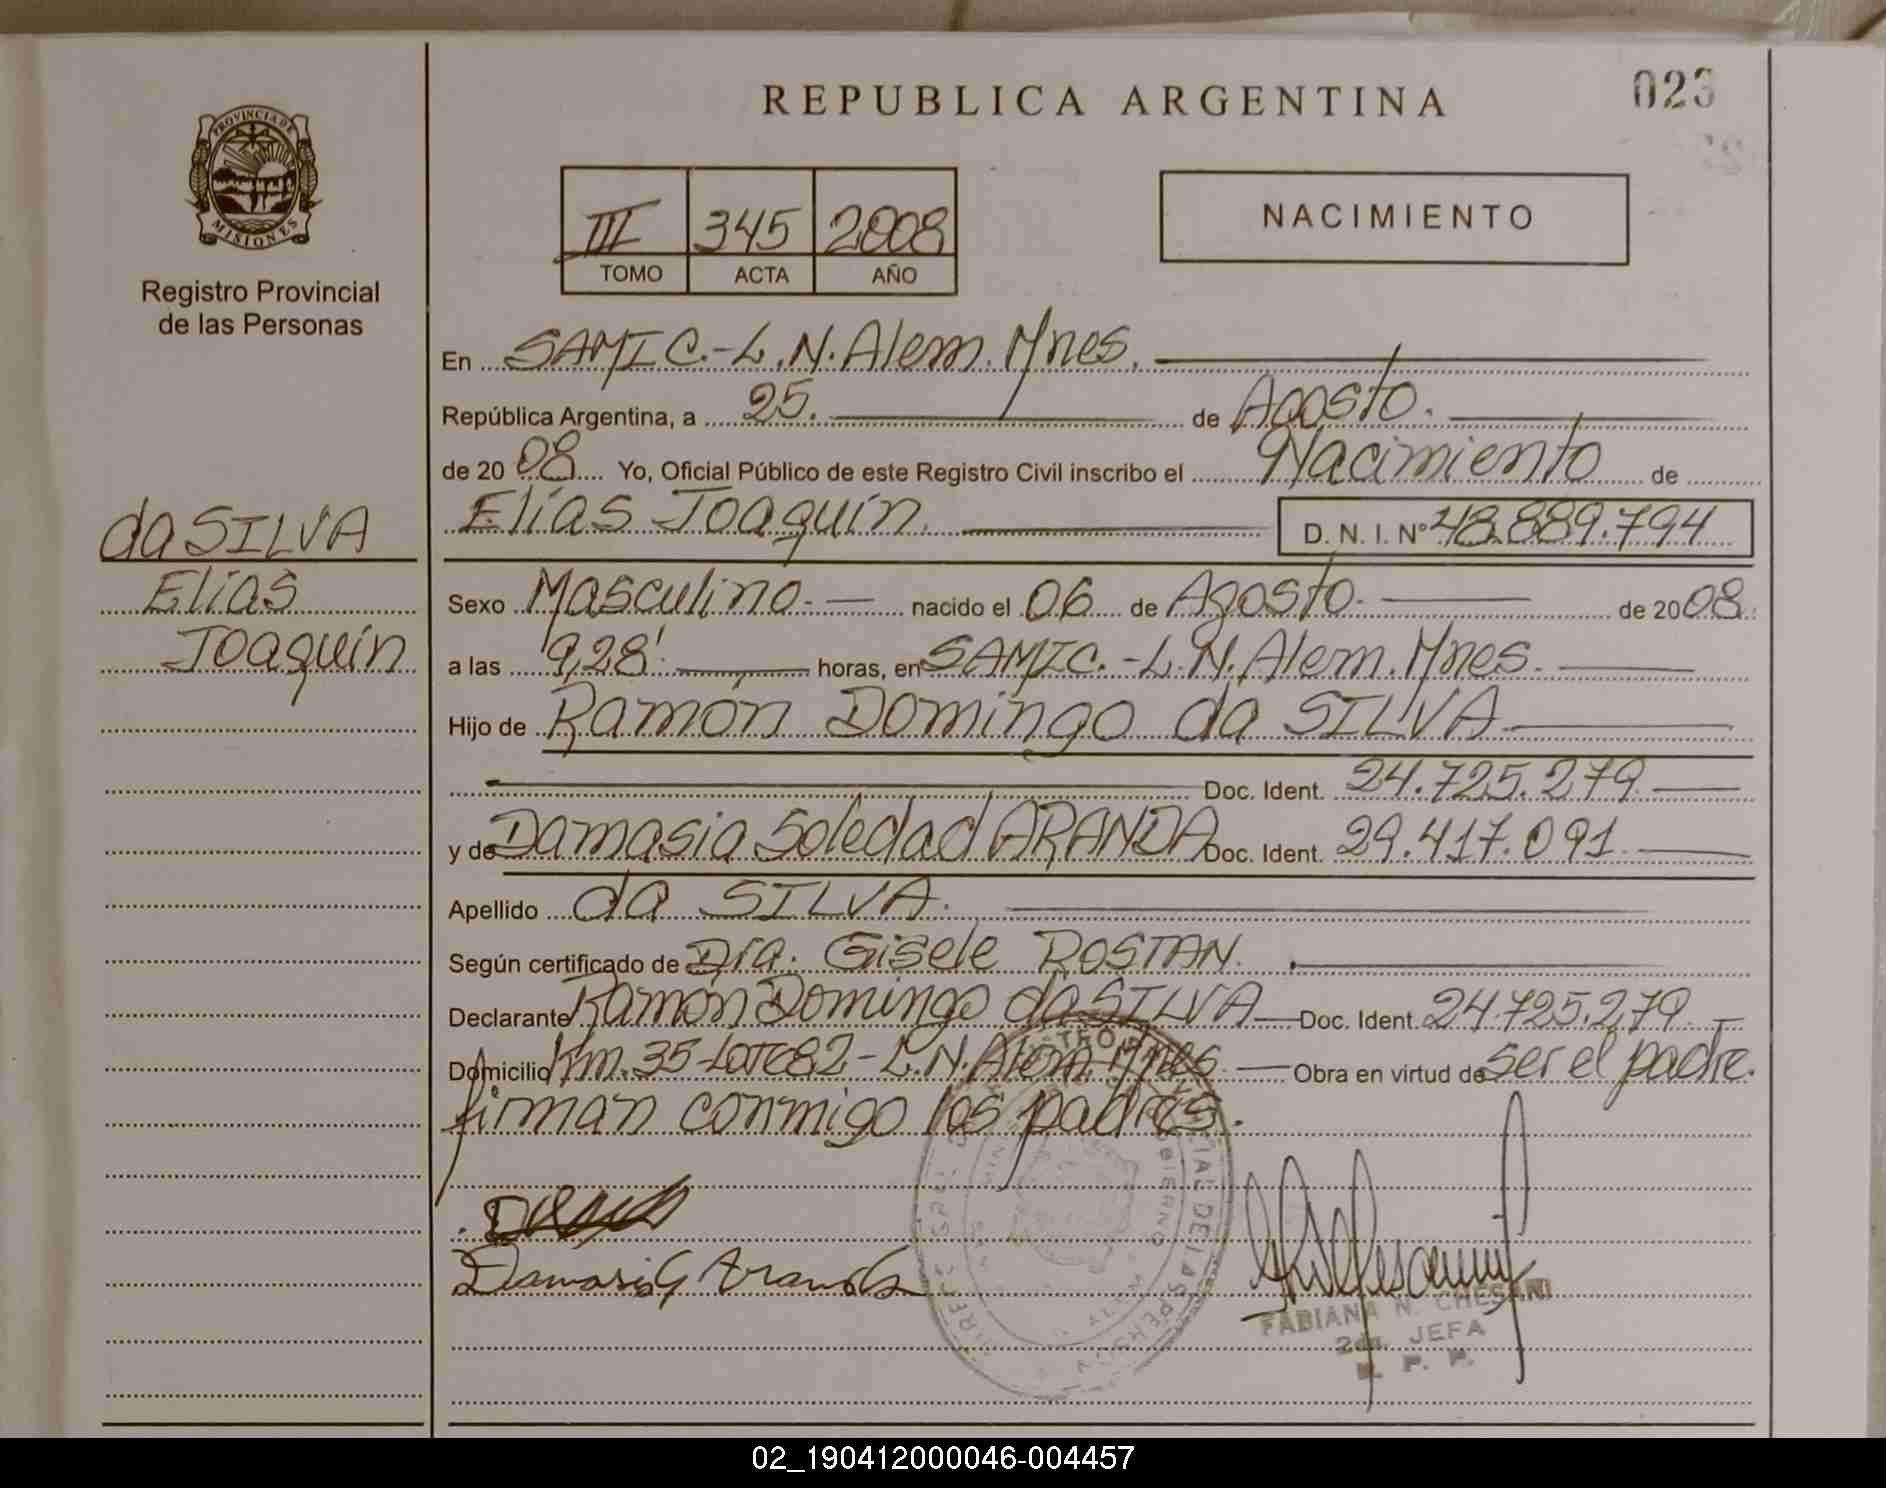 REPUBLICA ARGENTINA
023
PROVINCIA DE
MISIONES
Registro Provincial
de las Personas
III 345 2008
TOMO ACTA AÑO
NACIMIENTO
En SAMIC.-L.N.Alem.Mnes.
República Argentina, a 25. de Agosto.
de 2008 Yo, Oficial Público de este Registro Civil inscribo el Nacimiento de
Elías Joaquín. D. N. I. Nº 48.889.794
da SILVA
Elías
Joaquín
Sexo Masculino.- nacido el 06 de Agosto. de 2008.
a las 9,28'. horas, en SAMIC.-L.N.Alem.Mnes.
Hijo de Ramón Domingo da SILVA
Doc. Ident. 24.725.279
y de Damasia Soledad ARANDA Doc. Ident. 29.417.091
Apellido da SILVA.
Según certificado de Dra. Gisele ROSTAN.
Declarante Ramón Domingo da SILVA Doc. Ident. 24.725.279
Domicilio Km.35-Lote82-L.N.Alem-Mnes. Obra en virtud de ser el padre.
firman conmigo los padres.
FABIANA N. CHESANI
2da. JEFA
R. P. P.
02_190412000046-004457